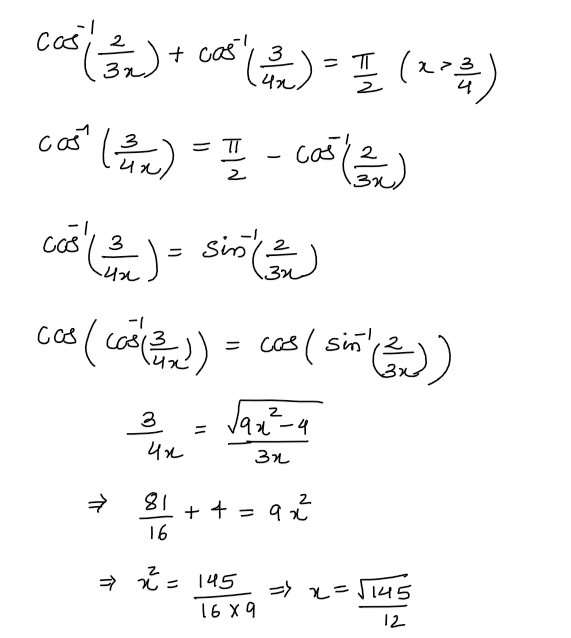 cos⁻¹(2/3x) + cos⁻¹(3/4x) = π/2 (x > 3/4)
cos⁻¹(3/4x) = π/2 - cos⁻¹(2/3x)
cos⁻¹(3/4x) = sin⁻¹(2/3x)
cos(cos⁻¹(3/4x)) = cos(sin⁻¹(2/3x))
3/4x = √(9x²-4)/3x
⇒ 81/16 + 4 = 9x²
⇒ x² = 145/(16×9) ⇒ x = √145/12